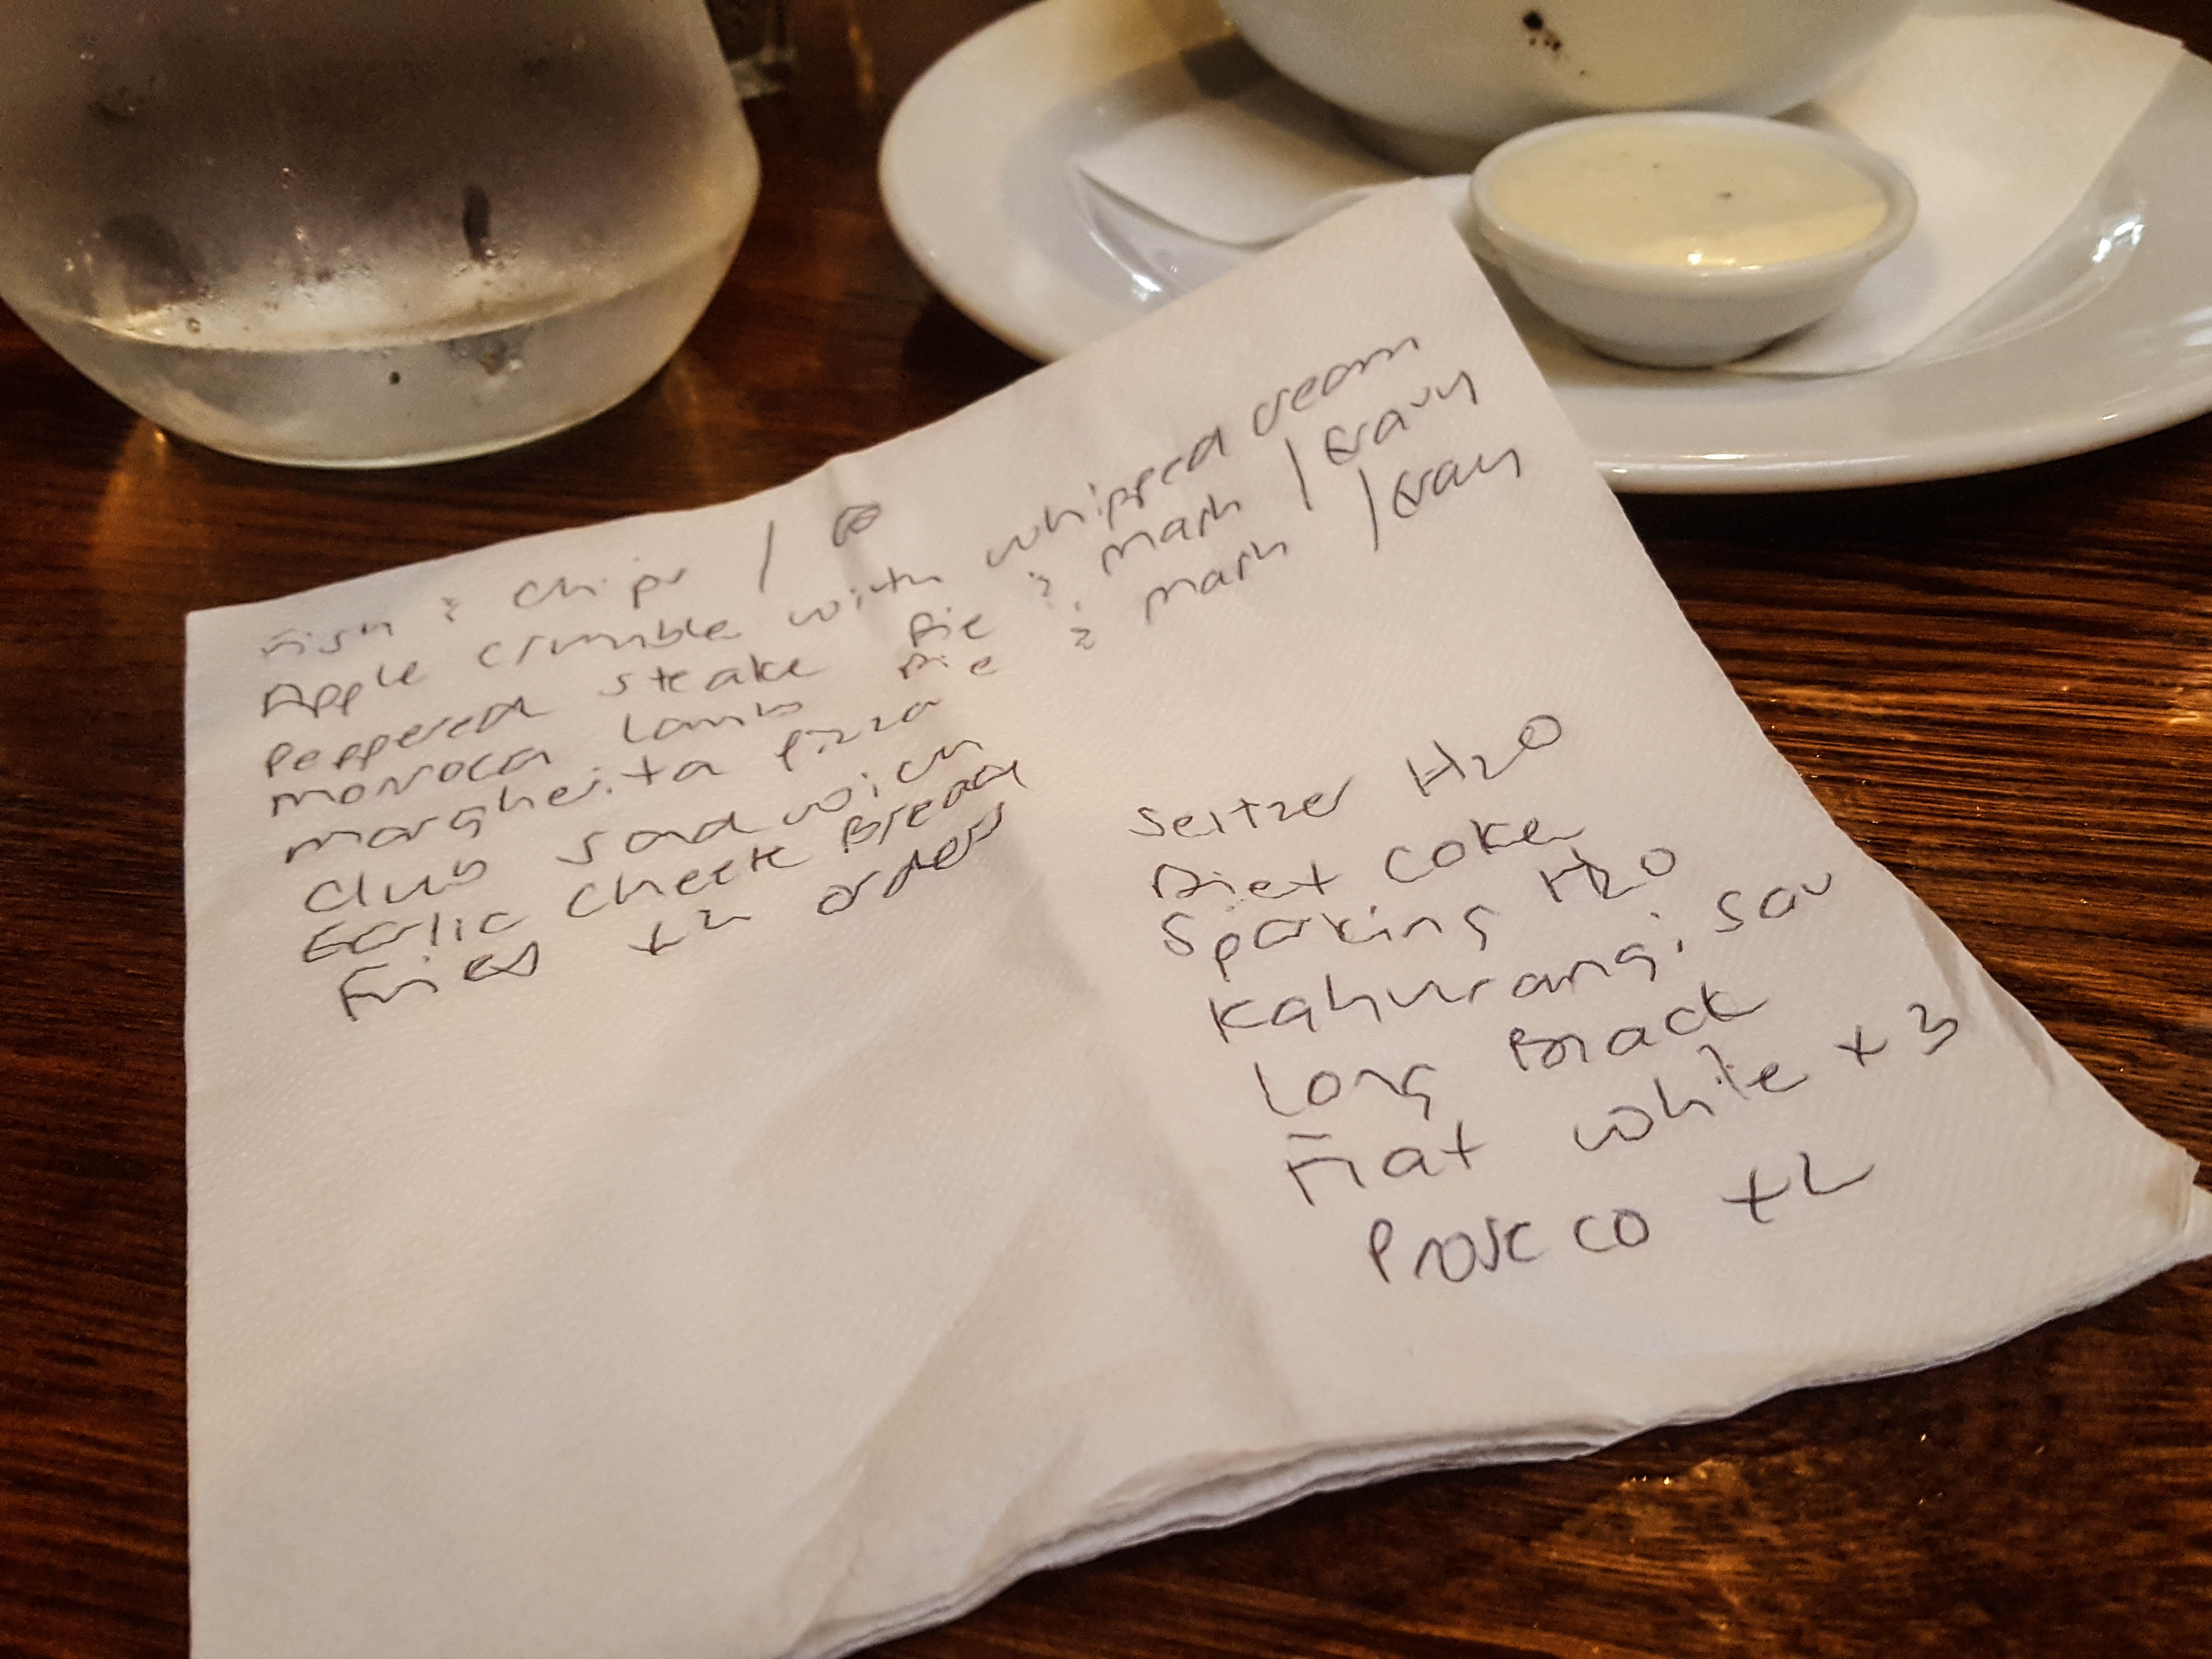 Fish & chips /
Apple crumble with whipped cream
Peppered steake Pie & mash / Gravy
moroca lamb Pie & mash / Gravy
margherita pizza
Club sandwich
Garlic cheese Bread
Fries x2 orders
Seltzer H2O
Diet coke
Sparking H2O
Kahurangi sav
Long Black
Flat white x3
Prosecco x2